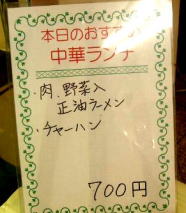 本日のおすすめ
中華ランチ
・肉、野菜入
正油ラーメン
・チャーハン
700円